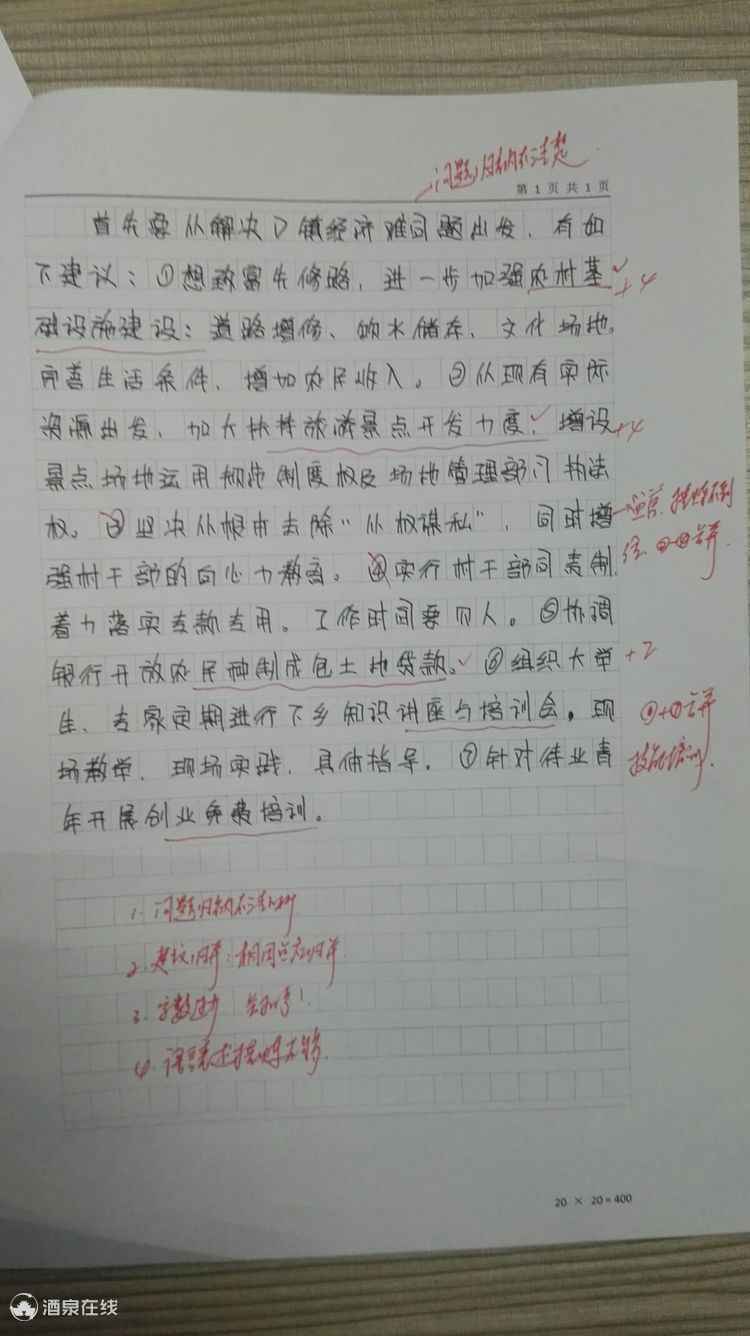 问题归纳不清楚
第 1 页 共 1 页
首先要从解决D镇经济难问题出发,有如
下建议:①想致富先修路,进一步加强农村基
+4
础设施建设:道路增修、饮水储存、文化场地,
完善生活条件,增加农民收入。②从现有实际
资源出发,加大扶持旅游景点开发力度:增设
+4
景点场地运用规范制度权及场地管理部门执法
权。③坚决从根本去除“从权谋私”,同时增
强村干部的向心力教育。④实行村干部问责制,
③④合并
着力落实专款专用。工作时间要见人。⑤协调
银行开放农民种制成包土地贷款。⑥组织大学
+2
生、专家定期进行下乡知识讲座与培训会。现
场教学,现场实践,具体指导。⑦针对待业青
⑥+⑦合并
技能培训.
年开展创业免费培训。
1. 问题归纳不清晰
2. 建议归并:相同点应归并
3. 字数
4. 语言表述提炼不够.
20 × 20=400
酒泉在线